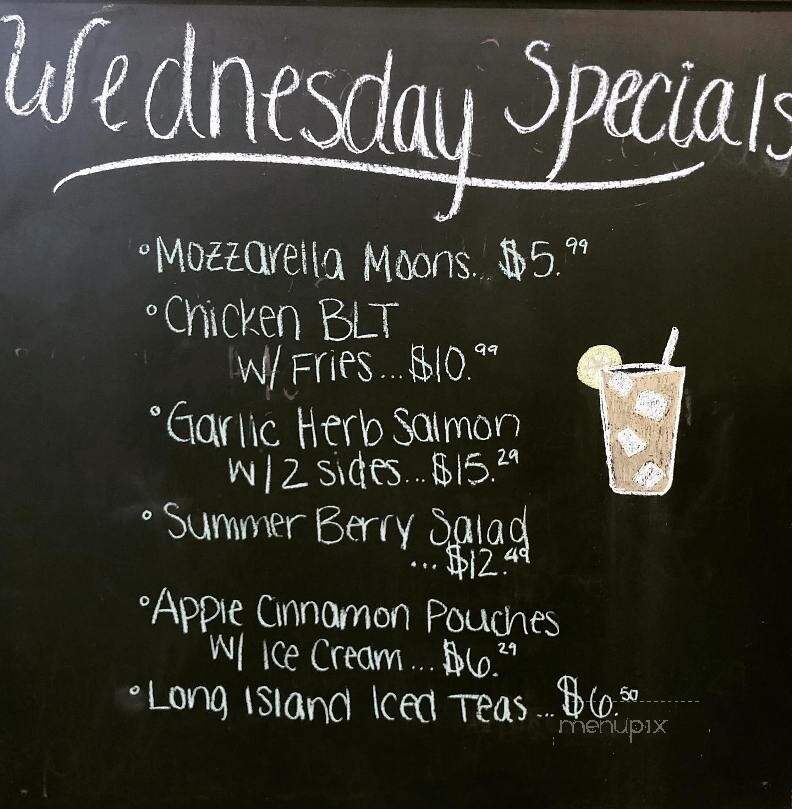 Wednesday Specials
°Mozzarella Moons... $5.99
°Chicken BLT
W/ Fries...$10.99
°Garlic Herb Salmon
W/2 sides...$15.29
°Summer Berry Salad
...$12.49
°Apple Cinnamon Pouches
W/ Ice Cream...$6.29
°Long Island Iced Teas...$6.50
menupix